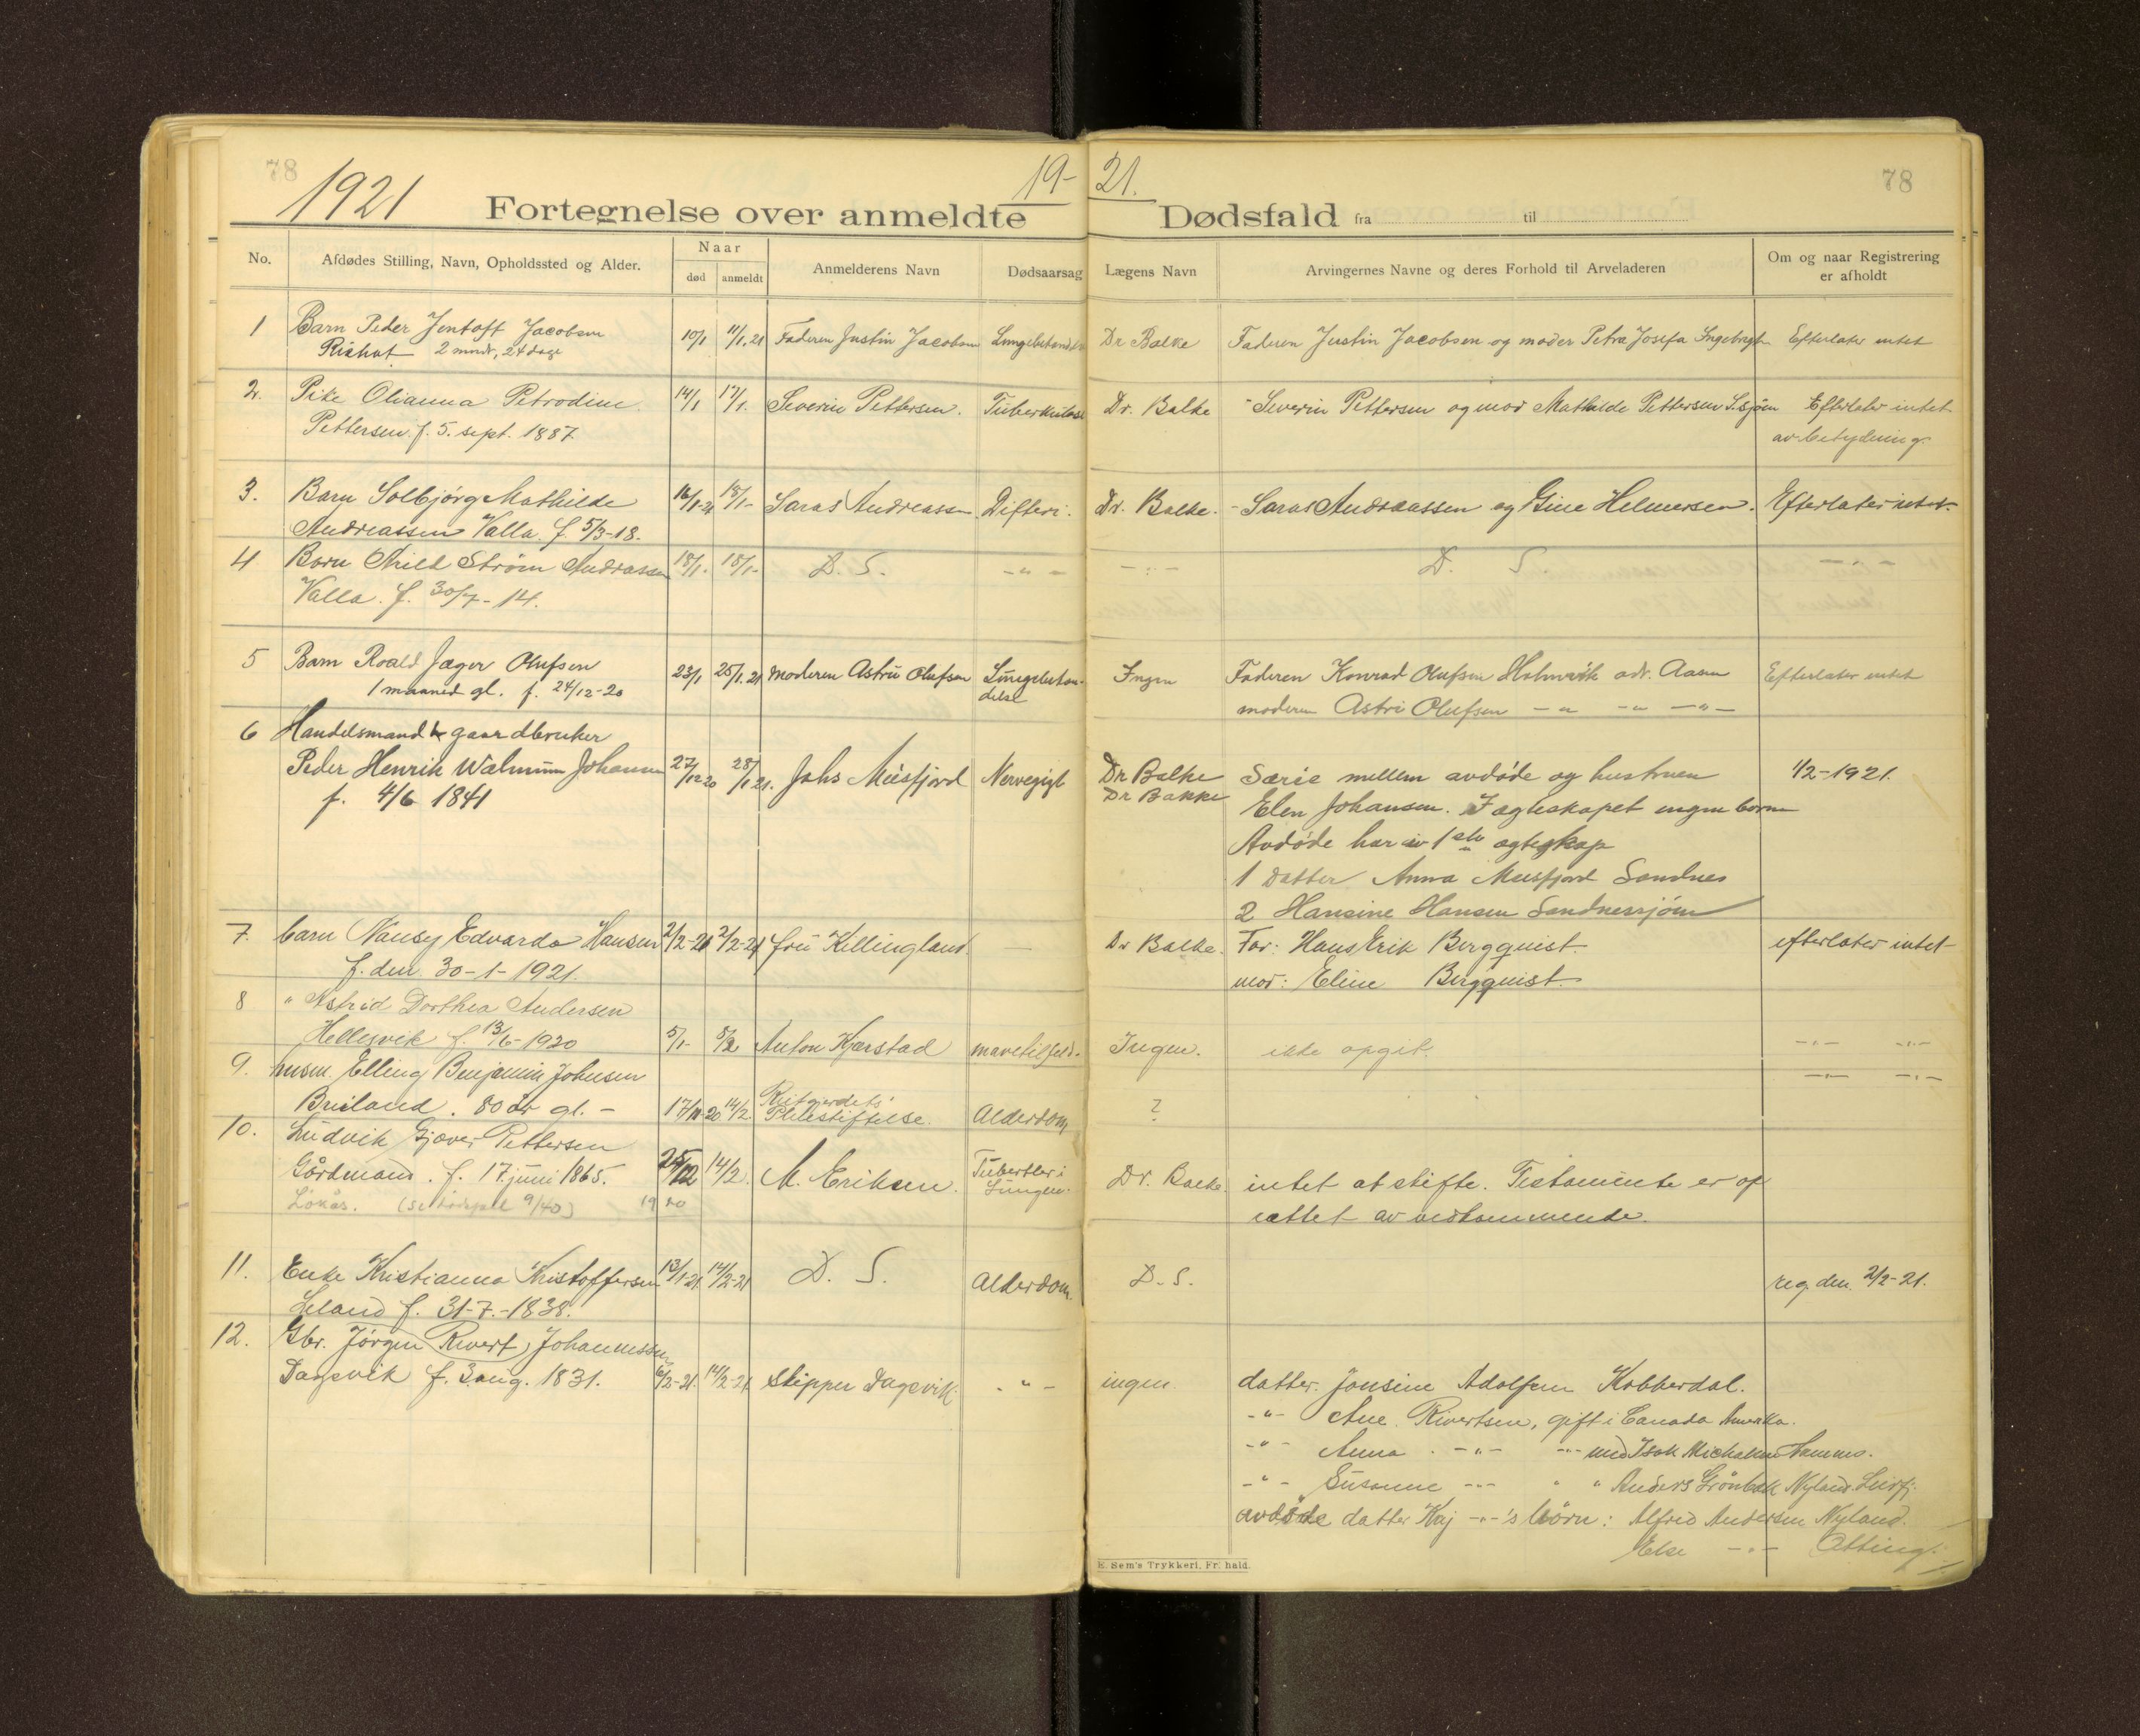 78
1921
19-
21.
78
Fortegnelse over anmeldte
Dødsfald fra til
No.
Afdødes Stilling, Navn, Opholdssted og Alder.
Naar
død
anmeldt
Anmelderens Navn
Dødsaarsag
Lægens Navn
Arvingernes Navne og deres Forhold til Arveladeren
Om og naar Registrering
er afholdt
1 Barn Peder Jentoft Jacobsen
Rishat 2 mndr, 24 dage
10/1 11/1.21 Faderen Justin Jacobsen
Dr Balke Faderen Justin Jacobsen og moder Petra Josefa Ingebrigt Efterlater intet
2. Pike Olianna Petrodine
Pettersen. f. 5. sept. 1887.
14/1 17/1. Severin Pettersen. Tuberkulose
Dr. Balke - Severin Pettersen og mor Mathilde Pettersen S.sjøen Efterlater intet
av betydning.
3. Barn Solbjørg Mathilde
Andreassen Valla. f. 5/3-18.
16/1-21 18/1- Saras Andreassen Difteri.
Dr. Balke. - Saras Andreassen og Gine Helmersen. Efterlater intet
4 Barn Arild Strøm Andreassen
Valla. f. 30/7-14.
18/1. 18/1- D. S. - " -
- " - D. S. - " -
5 Barn Roald Jæger Olufsen
1 maaned gl. f. 24/12-20
23/1 25/1.21 Moderen Astri Olufsen Lungebeten-
delse
Ingen Faderen Konrad Olufsen Holmvik adr. Aasen Efterlater intet
moderen Astri Olufsen - " - " - " -
6 Handelsmand & gaardbruker
Peder Henrik Walmum Johansen
f. 4/6 1841
27/12 20 28/1 21. Johs Miesfjord Nervegigt
Dr Balke
Dr Bakke
Særie mellem avdøde og hustruen 1/2-1921.
Elen Johansen. I ægteskapet ingen børn
Avdøde har i 1ste ægteskap
1 Datter Anna Meisfjord Sandnes
2 Hansine Hansen Sandnessjøen
7. barn Nansy Edvarda Hansen
f. den 30-1-1921.
2/2-21 2/2-21 fru Killingland. -
Dr Balke. Far: Hans Erik Bergquist. efterlater intet
mor: Eline Bergquist.
8 " Astrid Dorthea Andersen
Hellesvik f. 13/6-1920
5/1- 5/2 Anton Kjærstad
Ingen. ikke opgit. - " - - " -
9. husm. Elling Benjamin Johnsen - " - - " -
Breiland. 80 år gl. -
17/11-20 14/2. Pleiestiftelse. Alderdom
?
10. Ludvik Gjæver Pettersen
Gårdmand. f. 17 juni 1865.
Lökås. 1920
25/12 14/2. M. Eriksen. Tuberkler i
Lungen.
Dr. Balke. intet at skifte. Testamente er op
rettet av vedkommende.
11. Enke Kristianna Kristoffersen
Leland f. 31-7.-1838.
13/1-21. 14/2-21 D. S. Alderdom.
D. S. reg. den 2/2-21.
12. Gbr. Jørgen (Rivert) Johannessen
Dagsvik f. 3 aug. 1831.
6/2-21. 14/2-21. Skipper Dagsvik. - " -
ingen datter. Jonsine Adolfsen Kobberdal.
- " - Ane Rivertsen, gift i Canada Amerika.
- " - Anna - " - - " - med Isak Michalsen Hamnes.
- " - Susanne - " - " " Anders Grönbek Nyland Leirfj.
avdøde datter Kaj - " -'s börn: Alfred Andersen Nyland.
Else - " -
E. Sem's Trykkeri, Fr. hald.